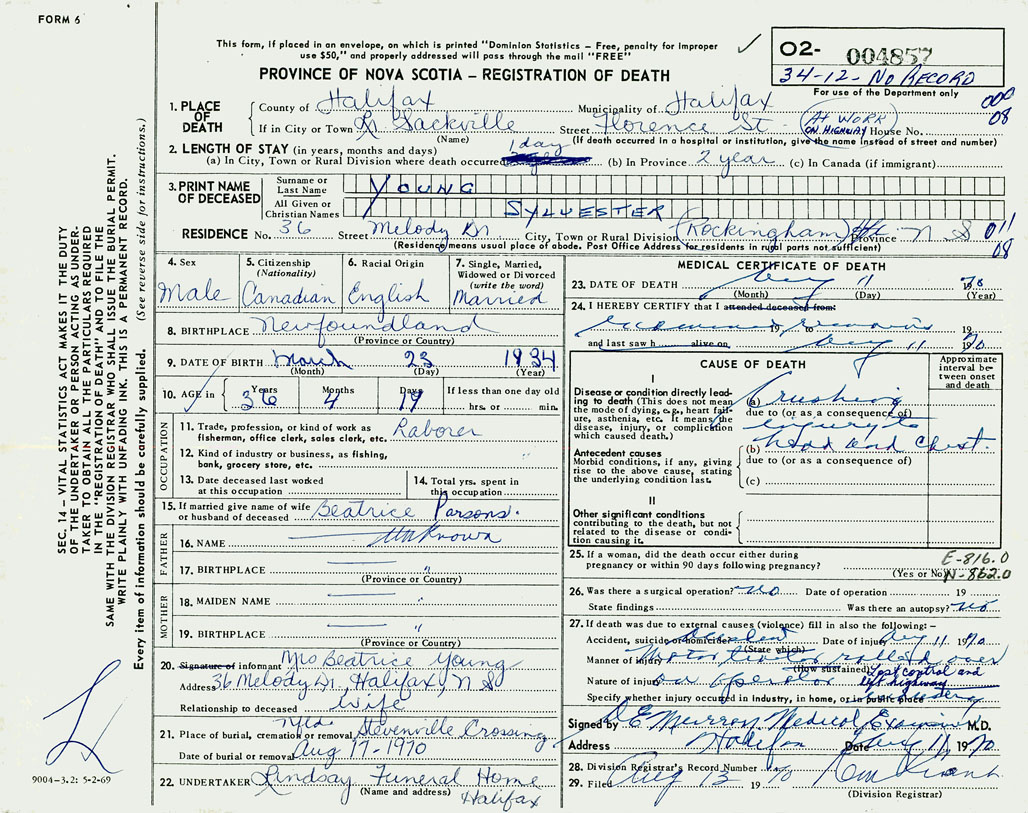 FORM 6
This form, if placed in an envelope, on which is printed "Dominion Statistics – Free, penalty for improper
use $50," and properly addressed will pass through the mail "FREE"
PROVINCE OF NOVA SCOTIA – REGISTRATION OF DEATH
02- 004857
34-12- NO RECORD
For use of the Department only
000
08
1. PLACE OF DEATH
County of Halifax Municipality of Halifax
If in City or Town Lr Sackville Street Florence St. (At Work on Highway) House No.
(Name) (If death occurred in a hospital or institution, give the name instead of street and number)
2. LENGTH OF STAY (in years, months and days)
(a) In City, Town or Rural Division where death occurred 1 day (b) In Province 2 year (c) In Canada (if immigrant)
3. PRINT NAME OF DECEASED
Surname or Last Name YOUNG
All Given or Christian Names SYLVESTER
RESIDENCE No. 36 Street Melody Dr City, Town or Rural Division (Rockingham) Hfx Province N S 011
08
(Residency means usual place of abode. Post Office Address for residents in rural parts not sufficient)
4. Sex Male
5. Citizenship (Nationality) Canadian
6. Racial Origin English
7. Single, Married, Widowed or Divorced (write the word) Married
8. BIRTHPLACE Newfoundland
(Province or Country)
9. DATE OF BIRTH March 23 1934
(Month) (Day) (Year)
10. AGE in Years 36 Months 4 Days 19 If less than one day old hrs. or min.
OCCUPATION
11. Trade, profession, or kind of work as fisherman, office clerk, sales clerk, etc. Laborer
12. Kind of industry or business, as fishing, bank, grocery store, etc. "
13. Date deceased last worked at this occupation
14. Total yrs. spent in this occupation
15. If married give name of wife or husband of deceased Beatrice Parsons.
FATHER
16. NAME Unknown
17. BIRTHPLACE "
(Province or Country)
MOTHER
18. MAIDEN NAME "
19. BIRTHPLACE "
(Province or Country)
20. Signature of informant Mrs Beatrice Young
Address 36 Melody Dr, Halifax, N S
Relationship to deceased Wife
21. Place of burial, cremation or removal Nfld. Stevenville Crossing
Date of burial or removal Aug 17-1970
22. UNDERTAKER Lindsay Funeral Home
(Name and address) Halifax
MEDICAL CERTIFICATE OF DEATH
23. DATE OF DEATH Aug 11 70
(Month) (Day) (Year)
24. I HEREBY CERTIFY that I attended deceased from:
examined 19 to remains 19
and last saw h alive on Aug 11 1970
CAUSE OF DEATH
Approximate interval between onset and death
I
Disease or condition directly leading to death (This does not mean the mode of dying, e.g., heart failure, asthenia, etc. It means the disease, injury, or complication which caused death.)
(a) Crushing
due to (or as a consequence of)
injury to
(b) head and chest.
due to (or as a consequence of)
(c)
Antecedent causes
Morbid conditions, if any, giving rise to the above cause, stating the underlying condition last.
II
Other significant conditions
contributing to the death, but not related to the disease or condition causing it.
25. If a woman, did the death occur either during pregnancy or within 90 days following pregnancy?
(Yes or No)
E-816.0
N-862.0
26. Was there a surgical operation? no Date of operation 19
State findings Was there an autopsy? no
27. If death was due to external causes (violence) fill in also the following:–
Accident, suicide or homicide? Accident Date of injury Aug 11 1970
(State which)
Manner of injury Motor rolled over
(How sustained)
Nature of injury on operator Lost control and left highway
Specify whether injury occurred in Industry, in home, or in public place
Signed by Murray Medical Examiner M.D.
Address Halifax Date Aug 11, 1970
28. Division Registrar's Record Number
29. Filed Aug 13 1970
(Division Registrar)
SEC. 14 – VITAL STATISTICS ACT MAKES IT THE DUTY
OF THE UNDERTAKER OR PERSON ACTING AS UNDER-
TAKER TO OBTAIN ALL THE PARTICULARS REQUIRED
IN THE "REGISTRATION OF DEATH" AND TO FILE THE
SAME WITH THE DIVISION REGISTRAR WHO SHALL ISSUE THE BURIAL PERMIT.
WRITE PLAINLY WITH UNFADING INK. THIS IS A PERMANENT RECORD.
Every item of information should be carefully supplied. (See reverse side for instructions.)
9004-3.2: 5-2-69